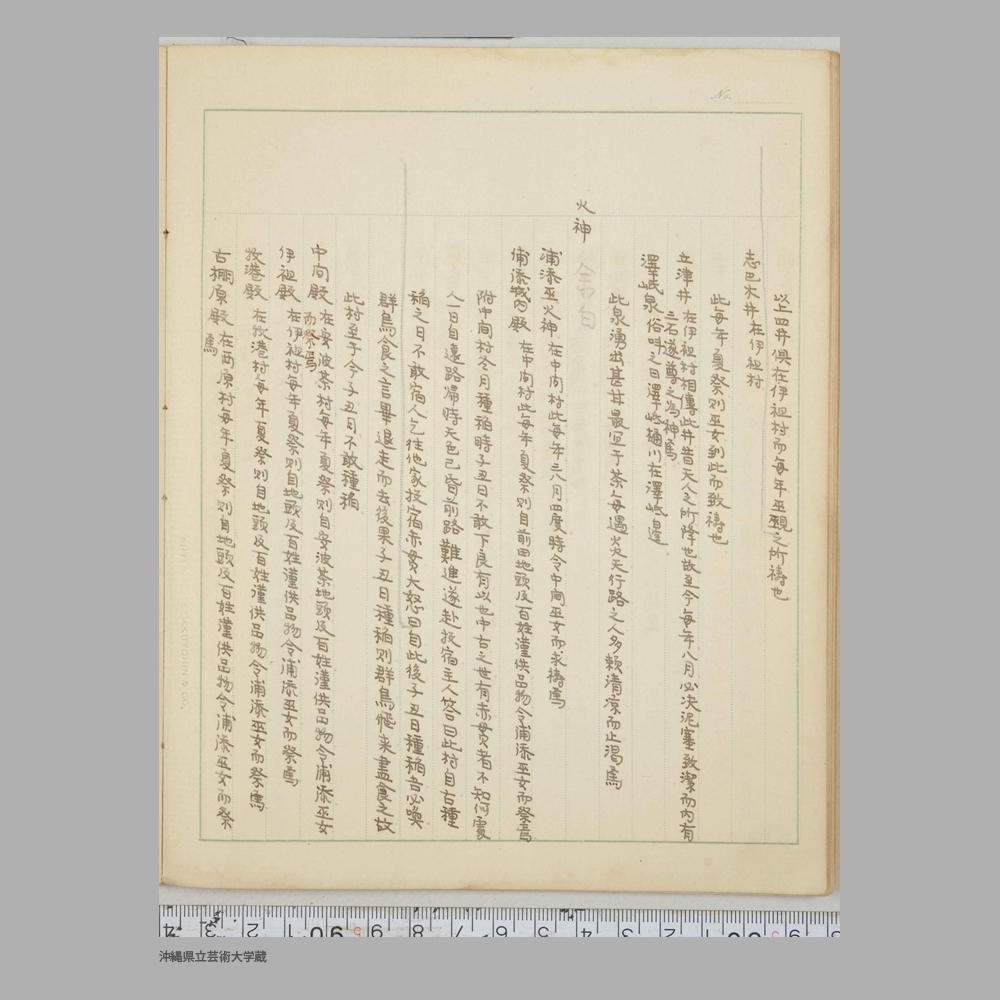 No.
以上四井俱在伊祖村而每年巫覡之所禱也
志巴木井 在伊祖村
此每年夏祭則巫女到此而致禱也
立津井 在伊祖村相傳此井昔天人之所降也故至今每年八月必決泥塞致潔而内有
三石遂尊之為神焉
澤岻泉 俗叫之曰澤岻樋川在澤岻邑
此泉湧出甚甘最宜于茶每遇炎天行路之人多賴清凉而止渴焉
火神
浦添巫火神 在中間村此每年三八月四度時令中間巫女而求禱焉
浦添城内殿 在中間村此每年夏祭則自前田地頭及百姓謹供品物令浦添巫女而祭焉
附中間村冬月種稲時子丑日不敢下良有以也中古之世有赤貫者不知何處
人一日自遠路帰時天色已昏前路難進遂赴投宿主人答曰此村自古種
稲之日不敢宿人乞往他家投宿赤貫大怒曰自此後子丑日種稲吾必喚
群鳥食之言畢退走而去後果子丑日種稲則群鳥慌来盡食之故
此村至于今子丑月不敢種稲
中間殿 在安波茶村每年夏祭則自安波茶地頭及百姓謹供品物令浦添巫女
而祭焉
伊祖殿 在伊祖村每年夏祭則自地頭及百姓謹供品物令浦添巫女而祭焉
牧港殿 在牧港村每年夏祭則自地頭及百姓謹供品物令浦添巫女而祭焉
古棚原殿 在西原村每年夏祭則自地頭及百姓謹供品物令浦添巫女而祭
焉
沖縄県立芸術大学蔵